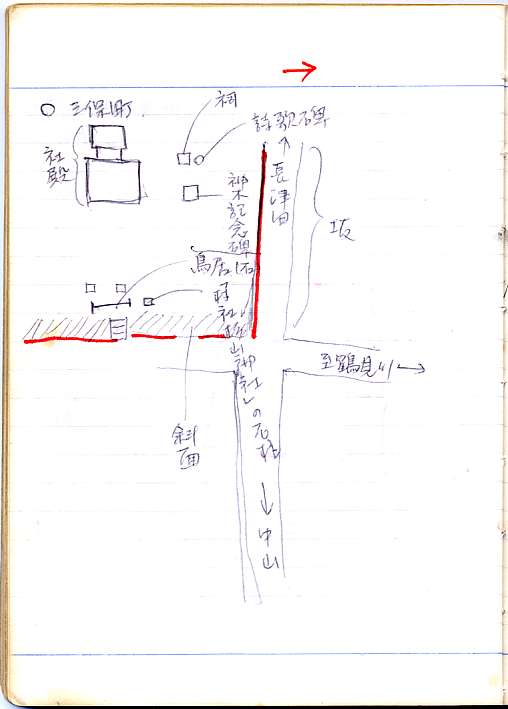 三保町
社殿
祠
詩歌碑
神木記念碑
鳥居(石)
村社「杉山神社」の石柱
長津田
坂
斜面
至鶴見川
中山